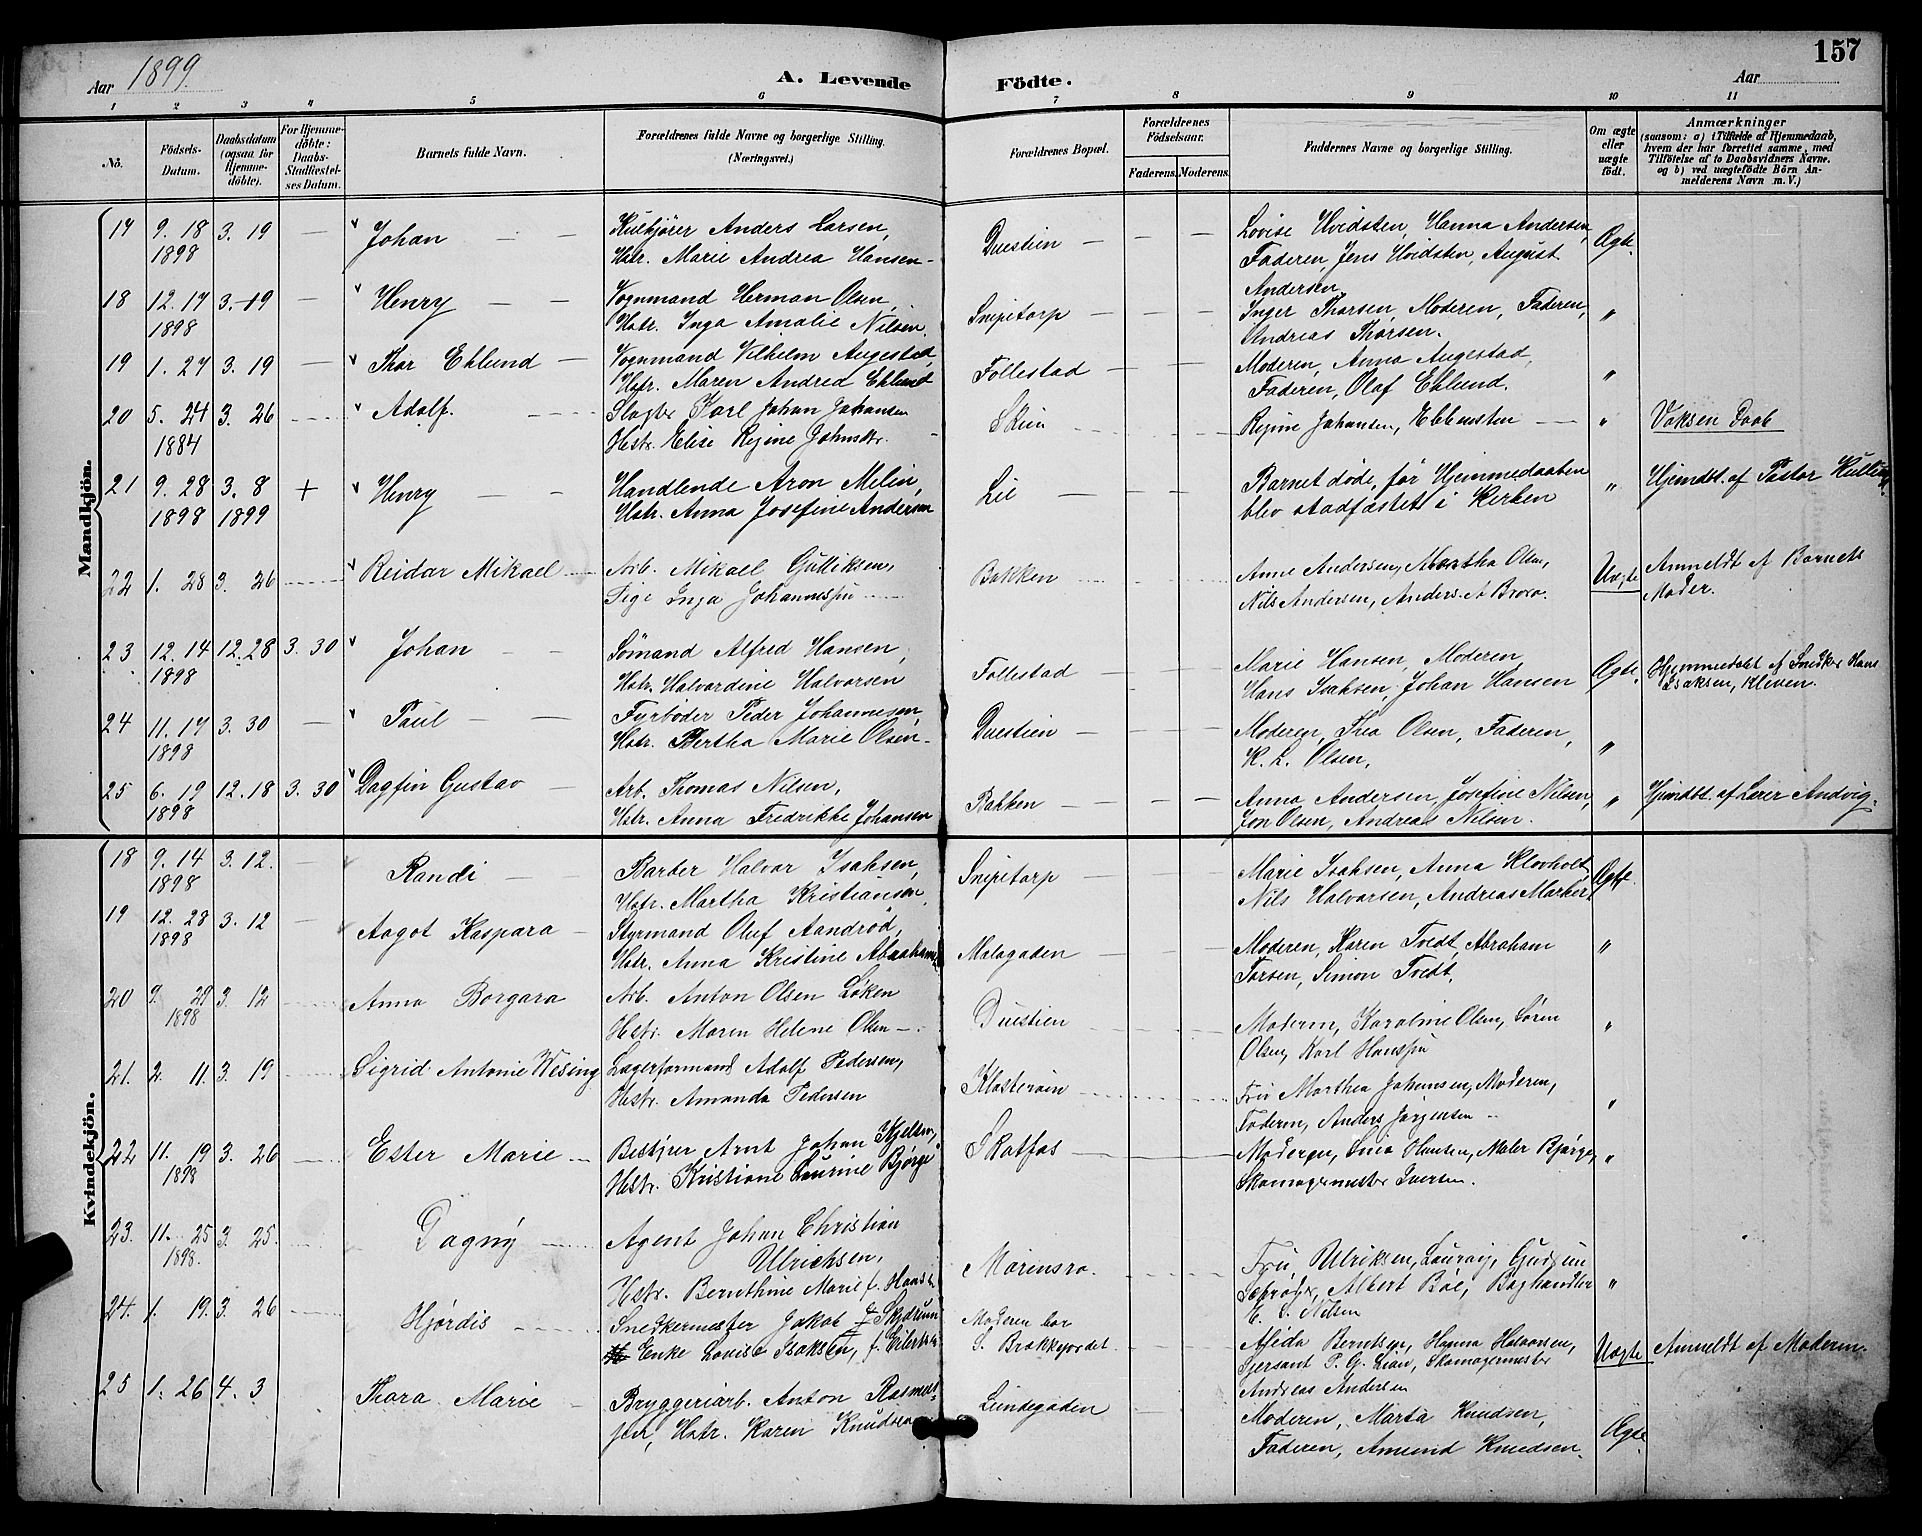 157
Aar 1899.
A. Levende Födte.
Aar
1 2 3 4 5 6 7 8 9 10 11
No.
Födsels-Datum.
Daabsdatum (ogsaa for Hjemme-döbte).
For Hjemme-döbte: Daabs-Stadfæstel-ses Datum.
Barnets fulde Navn.
Forældrenes fulde Navne og borgerlige Stilling. (Næringsvei.)
Forældrenes Bopæl.
Forældrenes Födselsaar.
Faderens. Moderens.
Faddernes Navne og borgerlige Stilling.
Om ægte eller uægte födt.
Anmærkninger
(saasom: a) i Tilfælde af Hjemmedaab,
hvem der har forrettet samme, med
Tilföielse af to Daabsvidners Navne.
og b) ved uægtefödte Börn An-
melderens Navn m.V.)
Mandkjön.
17 9. 18 3. 19 — Johan — — Anders Larsen, Duestien — — — Lovise Hvidsten, Hanna Andersen, Ægte.
1898 Hstr. Marie Andrea Hansen - Faderen, Jens Hvidsten, August
Andersen.
18 12. 17 3. 19 — Henry — — Vognmand Herman Olsen, Snipetorp — — — Inger Thorsen, Moderen, Faderen, "
1898 Hstr. Inga Amalie Nilsen Andreas Thorsen.
19 1. 27 3. 19 — Thor Eklund — Vognmand Vilhelm Augestad, Follestad — — — Moderen, Anna Augestad, "
Hstr. Maren Andrea Eklund Faderen, Olaf Eklund.
20 5. 24 3. 26 Adolf. Slagter Karl Johan Johansen Skien Regine Johansen, — " Voksen Daab
1884 Hstr. Elise Regine Johnsdtr.
21 9. 28 3. 8 + Henry — — Handlende Aron Melin, Lie — — — Barnet döde, før Hjemmedaaben " Hjemdbt. af Pastor
1898 1899 Hstr. Anna Josefine Andersen blev stadfæstet i Kirken
22 1. 28 3. 26 Reidar Mikael Arb. Mikael Gulliksen, Bakken Anne Andersen, Martha Olsen, Uægte Anmeldt af Barnets
Pige Inga Johannesen Nils Andersen, Anders Moder.
23 12. 14 12. 28 3. 30 Johan — — Sømand Alfred Hansen, Follestad — — — Marie Hansen, Moderen, Ægte. Hjemmedøbt af Snedker Hans
1898 Hstr. Halvardine Halvorsen Hans Isaksen, Johan Hansen Isaksen, Kleven.
24 11. 17 3. 30 — Paul — — Fyrbøder Peder Johannesen, Duestien — — — Moderen, Thea Olsen, Faderen, "
1898 Hstr. Bertha Marie Olsen - K. L. Olsen,
25 6. 19 12. 18 3. 30 Dagfin Gustav — Arb. Thomas Nilsen, Bakken — — — Anna Andersen, Josefine Nilsen, " Hjemdbt. af Lærer Andvig.
1898 Hstr. Anna Fredrikke Johansen Jon Olsen, Andreas Nilsen.
Kvindekjön.
18 9. 14 3. 12. — Randi — — Barber Halvor Isaksen, Snipetorp — — — Marie Isaksen, Anna Klovholt, Ægte.
1898 Hstr. Martha Kristiansen, Nils Halvorsen, Andreas
19 12. 28 3. 12 — Aagot Kaspara — Styrmand Oluf Aandrød, Melagaden — — — Moderen, Karen Tvedt, Abraham "
1898 Hstr. Anna Kristine Torsen, Simon Tvedt,
20 9. 3. 12 Anna Borgara Arb. Anton Olsen Løken Duestien Moderen, Karoline Olsen, Søren "
1898 Hstr. Maren Helene Olsen — Olsen, Karl
21. 2. 11. 3. 19 Sigrid Antonie Wesing Lagerformand Adolf Pedersen, Klosterøen Fru Marthea Johansen, Moderen, "
Hstr. Amanda Pedersen Faderen, Anders Jørgensen —
22 11. 19 3. 26 Ester Marie Arnt Johan Kjelsen, Skotfos Moderen, Lina Hansen, Maler Bjørge, "
1898 Hstr. Kristiane Laurine Bjørge Skomagermester Iversen.
23. 11. 25 3. 25. Dagny Agent Johan Christian
1898. Ulrichsen, Marinsro. Fru Ulriksen,
Hstr. Bernthine Marie f. Albert Boe, "
24. 1. 19. 3. 26 Hjørdis Snedkermester Jakob Moderen bor E. S. Nilsen
Enke Lovise Isaksen, f. Eilertsen S. Brekkejordet. Alida Berntsen, Hanna Halvorsen, Uægte Anmeldt af Moderen.
Sjersant P. G. Lian, Skomagermester
Andreas Andersen
25 1. 26 4. 3 Thora Marie — Bryggeriarb. Anton Rasmus- Lundegaden Moderen, Marta Knudsen, Ægte.
sen, Hstr. Karen Knudsen Faderen, Amund Knudsen.